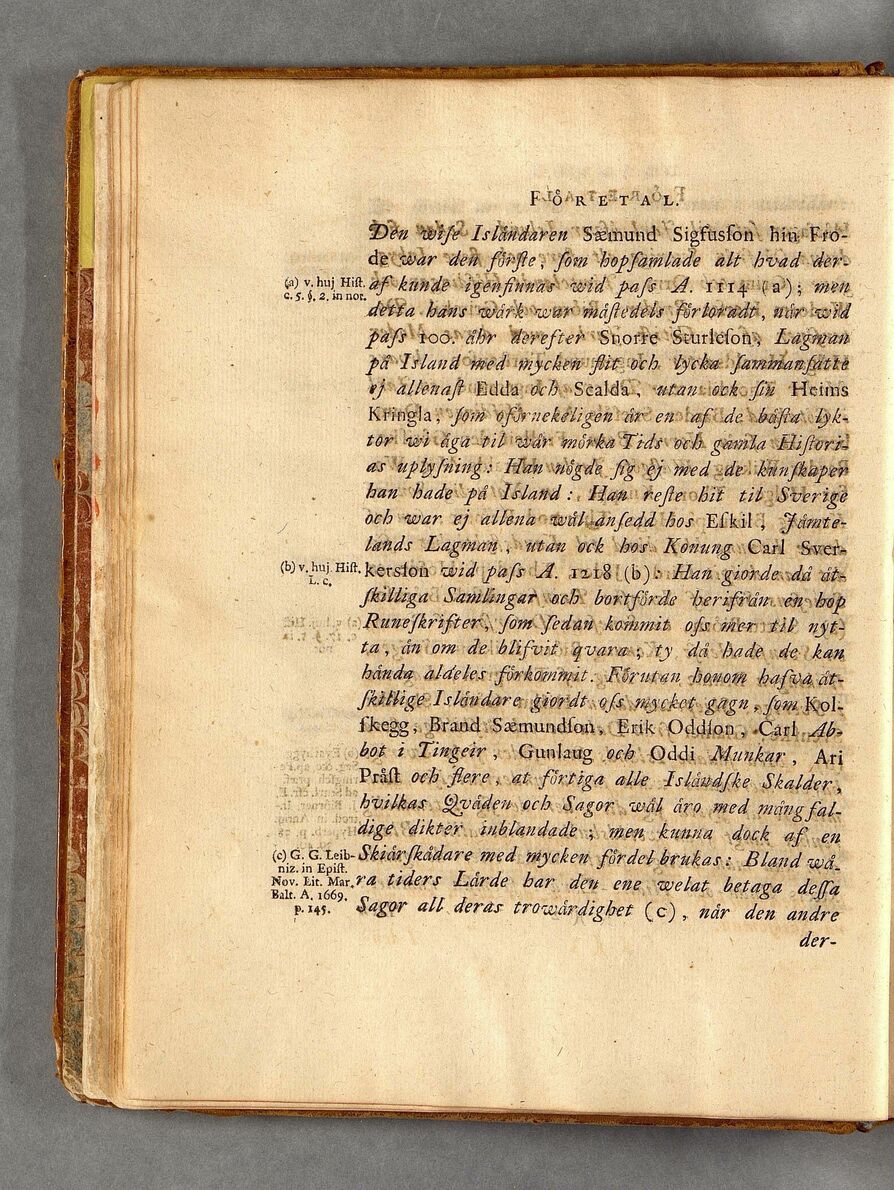 FÖRETAL.
Den wiſe Isländaren Sæmund Sigfusſon hin Fro-
de war den förſte, ſom hopſamlade alt hvad der-
(a) v. huj Hiſt.
c. 5. §. 2. in not.
af kunde igenfinnas wid paſs A. 1114 (a); men
detta hans wärk war mäſtedels förloradt, när wid
paſs 100. åhr derefter Snorre Sturleſon, Lagman
på Island med mycken flit och lycka ſammanſatte
ej allenaſt Edda och Scalda, utan ock ſin Heims
Kringla, ſom oförnekeligen är en af de bäſta lyk-
tor wi äga til wår mörka Tids och gamla Hiſtori-
as uplyſning: Han nögde ſig ej med de kunſkaper
han hade på Island: Han reſte hit til Sverige
och war ej allena wäl anſedd hos Eſkil, Jämte-
lands Lagman, utan ock hos Konung Carl Sver-
(b) v. huj. Hiſt.
L. c.
kersſon wid paſs A. 1218 (b): Han giorde då åt-
ſkilliga Samlingar och bortförde herifrån en hop
Runeſkrifter, ſom ſedan kommit oſs mer til nyt-
ta, än om de blifvit qvara; ty då hade de kan
hända aldeles förkommit. Förutan honom haſva åt-
ſkillige Isländare giordt oſs mycket gagn, ſom Kol-
ſkegg, Brand Sæmundſon, Erik Oddſon, Carl Ab-
bot i Tingeir, Gunlaug och Oddi Munkar, Ari
Präſt och flere, at förtiga alle Isländſke Skalder,
hvilkas Qväden och Sagor wäl äro med mång fal-
dige dikter inblandade; men kunna dock af en
(c) G. G. Leib-
niz. in Epiſt.
Nov. Lit. Mar.
Balt. A. 1669.
p. 145.
Skiärſkådare med mycken fördel brukas: Bland wå-
ra tiders Lärde har den ene welat betaga deſſa
Sagor all deras trowärdighet (c), när den andre
der-